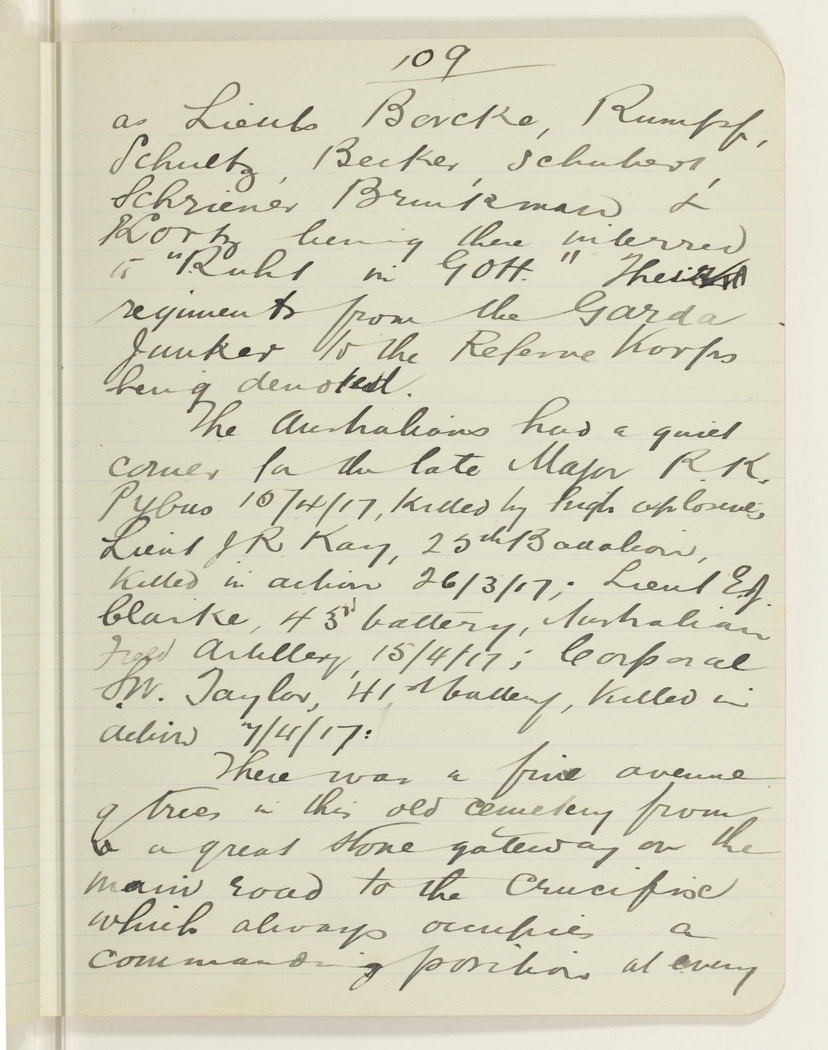 109
as Lieuts Borcke, Rumpf,
Schultz, Becker, Schubert,
Schriener Brinkman &
Kortz being there interred
to "Ruht in Gott." Their
regiments from the Garda
Junker to the Reserve Korps
being denoted.
The Australians had a quiet
corner for the late Major R.K.
Pybus 15/4/17, killed by high explosives,
Lieut J R Kay, 25th Battalion,
killed in action 26/3/17; Lieut E.J.
Clarke, 43rd battery, Australian
Field Artillery, 15/4/17; Corporal
W. Taylor, 41st battery, killed in
action 7/4/17:
There was a fine avenue
of trees in this old cemetery from
a great stone gateway on the
main road to the Crucifix
which always occupies a
commanding position at every